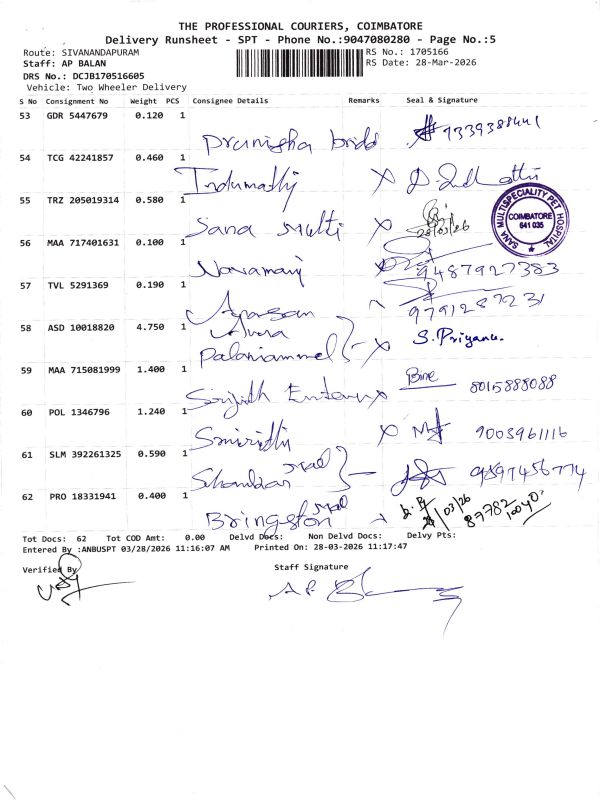 THE PROFESSIONAL COURIERS, COIMBATORE
Delivery Runsheet - SPT - Phone No.:9047080280 - Page No.:5
Route: SIVANANDAPURAM
RS No.: 1705166
Staff: AP BALAN
RS Date: 28-Mar-2026
DRS No.: DCJB170516605
Vehicle: Two Wheeler Delivery
S No Consignment No Weight PCS Consignee Details Remarks Seal & Signature
53 GDR 5447679 0.120 1
Pranisha 9339388441
54 TCG 42241857 0.460 1
Indumathy X
55 TRZ 205019314 0.580 1
Sana Multi X 28/03/26
SANA MULTISPECIALITY PET HOSPITAL
COIMBATORE
641 035
56 MAA 717401631 0.100 1
Navamani X 9487927383
57 TVL 5291369 0.190 1
9791287231
58 ASD 10018820 4.750 1
Palaniammal X S. Priyanka.
59 MAA 715081999 1.400 1
X 8015888088
60 POL 1346796 1.240 1
X 9003961116
61 SLM 392261325 0.590 1
9897456774
62 PRO 18331941 0.400 1
Bringston 87782
Tot Docs: 62 Tot COD Amt: 0.00 Delvd Docs: Non Delvd Docs: Delvy Pts:
Entered By :ANBUSPT 03/28/2026 11:16:07 AM Printed On: 28-03-2026 11:17:47
Verified By
Staff Signature